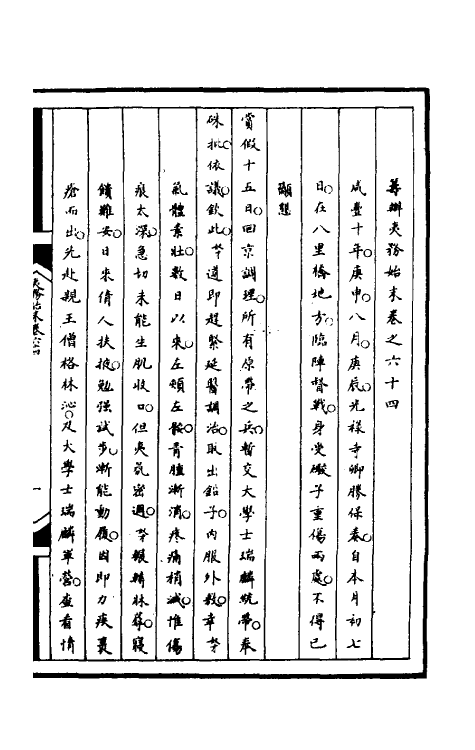 籌辦夷務始末卷之六十四
咸豐十年庚申八月庚辰光祿寺卿勝保奏自本月初七
日在八里橋地方臨陣督戰身受礮子重傷兩處不得已
顯懇
賞假十五日回京調理所有原帶之兵暫交大學士瑞麟統帶奉
硃批依議欽此等遵即趕緊延醫調治取出鉛子內服外敷幸等
氣體素壯數日以來左頰左骽青腫漸消疼痛稍減惟傷
痕太深急切未能生肌收口但夷氛密邇等輾轉牀蓐寢
饋難安日來倩人扶掖勉強試步漸能動履因即力疾裹
瘡而出先赴親王僧格林沁及大學士瑞麟軍營查看情
夷務始末卷六四
一